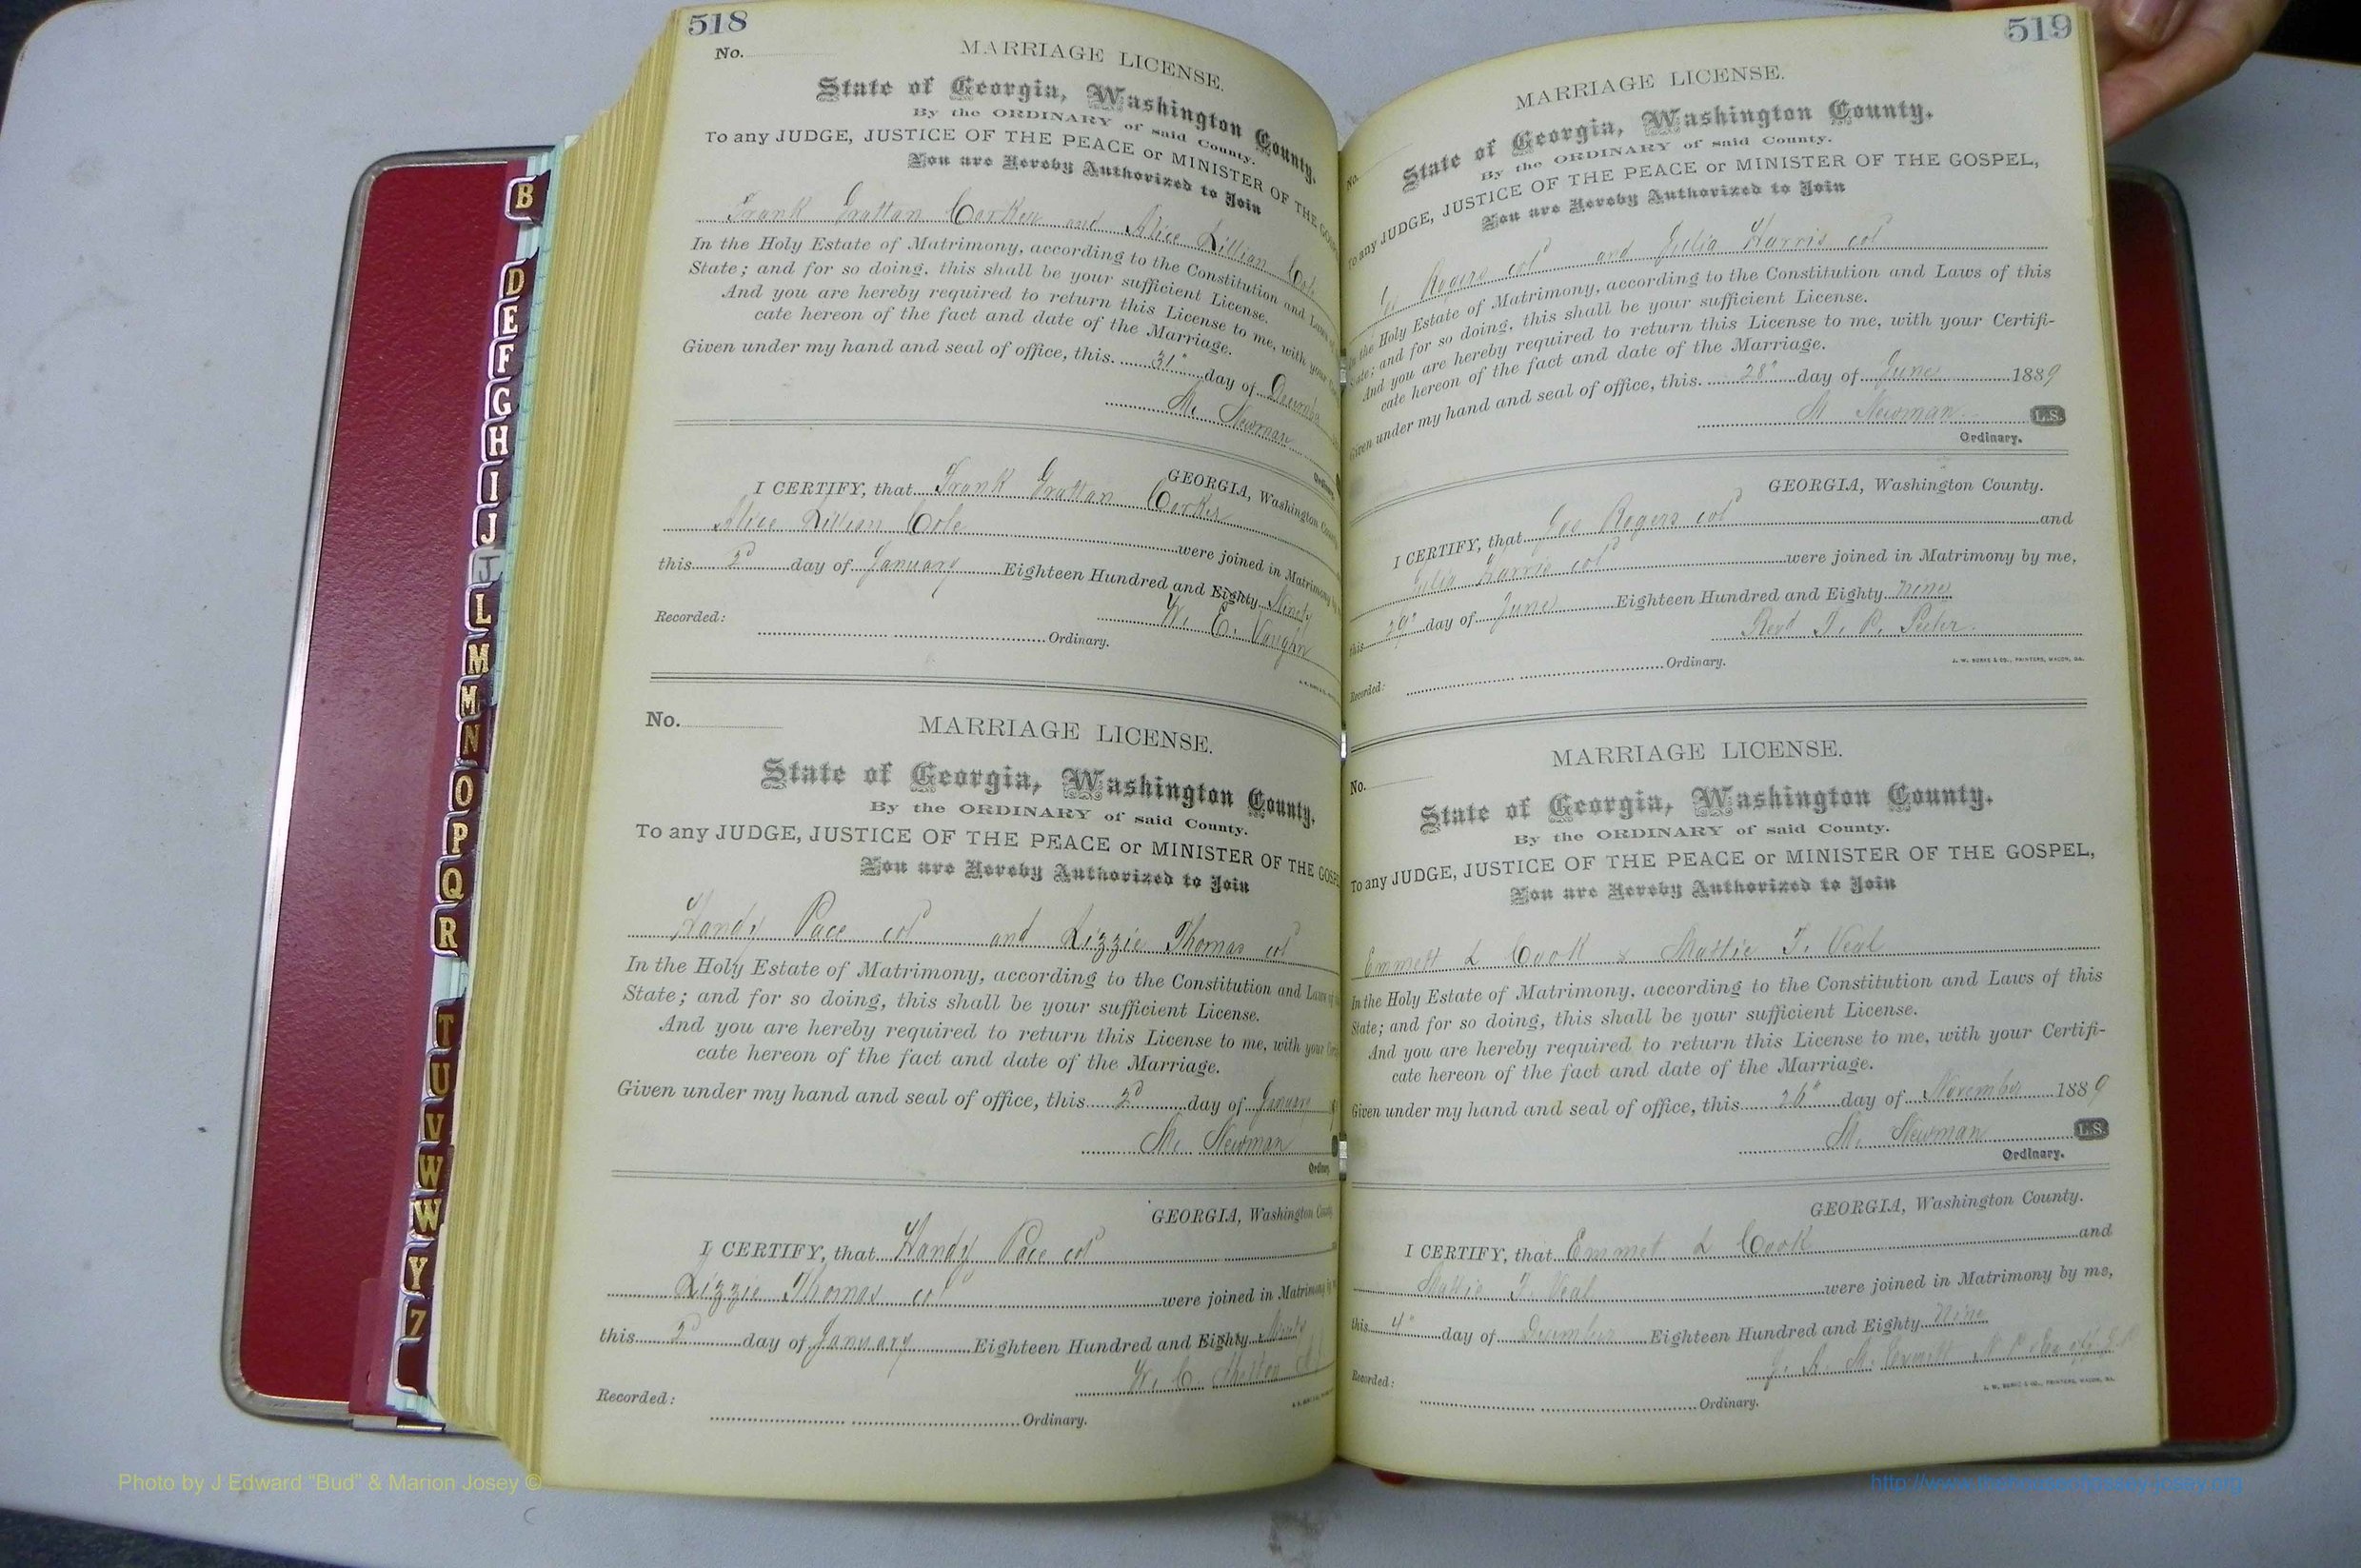 518
No.
MARRIAGE LICENSE.
State of Georgia, Washington County.
By the ORDINARY of said County.
To any JUDGE, JUSTICE OF THE PEACE or MINISTER OF THE GOSPEL
You are Hereby Authorized to Join
Frank Grattan Corker and Alice Lillian Cole
In the Holy Estate of Matrimony, according to the Constitution and Laws of
State; and for so doing, this shall be your sufficient License.
And you are hereby required to return this License to me, with your
cate hereon of the fact and date of the Marriage.
Given under my hand and seal of office, this 31" day of December
M. Newman
Ordinary.
GEORGIA, Washington County
I CERTIFY, that Frank Grattan Corker
Alice Lillian Cole were joined in Matrimony by
this 2d day of January Eighteen Hundred and Eighty Ninety
W. E. Vaughn
Recorded: Ordinary.
No.
MARRIAGE LICENSE.
State of Georgia, Washington County.
By the ORDINARY of said County.
To any JUDGE, JUSTICE OF THE PEACE or MINISTER OF THE GOSPE
You are Hereby Authorized to Join
Handy Pace cold and Lizzie Thomas cold
In the Holy Estate of Matrimony, according to the Constitution and Laws of
State; and for so doing, this shall be your sufficient License.
And you are hereby required to return this License to me, with your
cate hereon of the fact and date of the Marriage.
Given under my hand and seal of office, this 2d day of January
M. Newman
Ordinary
GEORGIA, Washington County
I CERTIFY, that Handy Pace cold
Lizzie Thomas col were joined in Matrimony by
this 2d day of January Eighteen Hundred and Eighty Ninety
W. C.
Recorded: Ordinary.
519
MARRIAGE LICENSE.
No.
State of Georgia, Washington County.
By the ORDINARY of said County.
To any JUDGE, JUSTICE OF THE PEACE or MINISTER OF THE GOSPEL,
You are Hereby Authorized to Join
Rogers cold and Julia Harris cold
In the Holy Estate of Matrimony, according to the Constitution and Laws of this
State; and for so doing, this shall be your sufficient License.
And you are hereby required to return this License to me, with your Certifi-
cate hereon of the fact and date of the Marriage.
Given under my hand and seal of office, this 28" day of June 1889
M Newman L.S.
Ordinary.
GEORGIA, Washington County.
I CERTIFY, that Rogers cold and
Julia Harris cold were joined in Matrimony by me,
this 29" day of June Eighteen Hundred and Eighty nine
Revd
Recorded: Ordinary.
J. W. BURKE & CO., PRINTERS, MACON, GA.
MARRIAGE LICENSE.
No.
State of Georgia, Washington County.
By the ORDINARY of said County.
To any JUDGE, JUSTICE OF THE PEACE or MINISTER OF THE GOSPEL,
You are Hereby Authorized to Join
Emmett L Cook & Mattie F. Veal
In the Holy Estate of Matrimony, according to the Constitution and Laws of this
State; and for so doing, this shall be your sufficient License.
And you are hereby required to return this License to me, with your Certifi-
cate hereon of the fact and date of the Marriage.
Given under my hand and seal of office, this 26" day of November 1889
M. Newman L.S.
Ordinary.
GEORGIA, Washington County.
I CERTIFY, that Emmet L Cook and
Mattie F. Veal were joined in Matrimony by me,
this 4" day of December Eighteen Hundred and Eighty Nine
Recorded: Ordinary.
J. W. BURKE & CO., PRINTERS, MACON, GA.
B
D
E
F
G
H
I
J
J
L
M
M
N
O
P
Q
R
T
U
V
W
W
Y
Z
Photo by J Edward "Bud" & Marion Josey ©